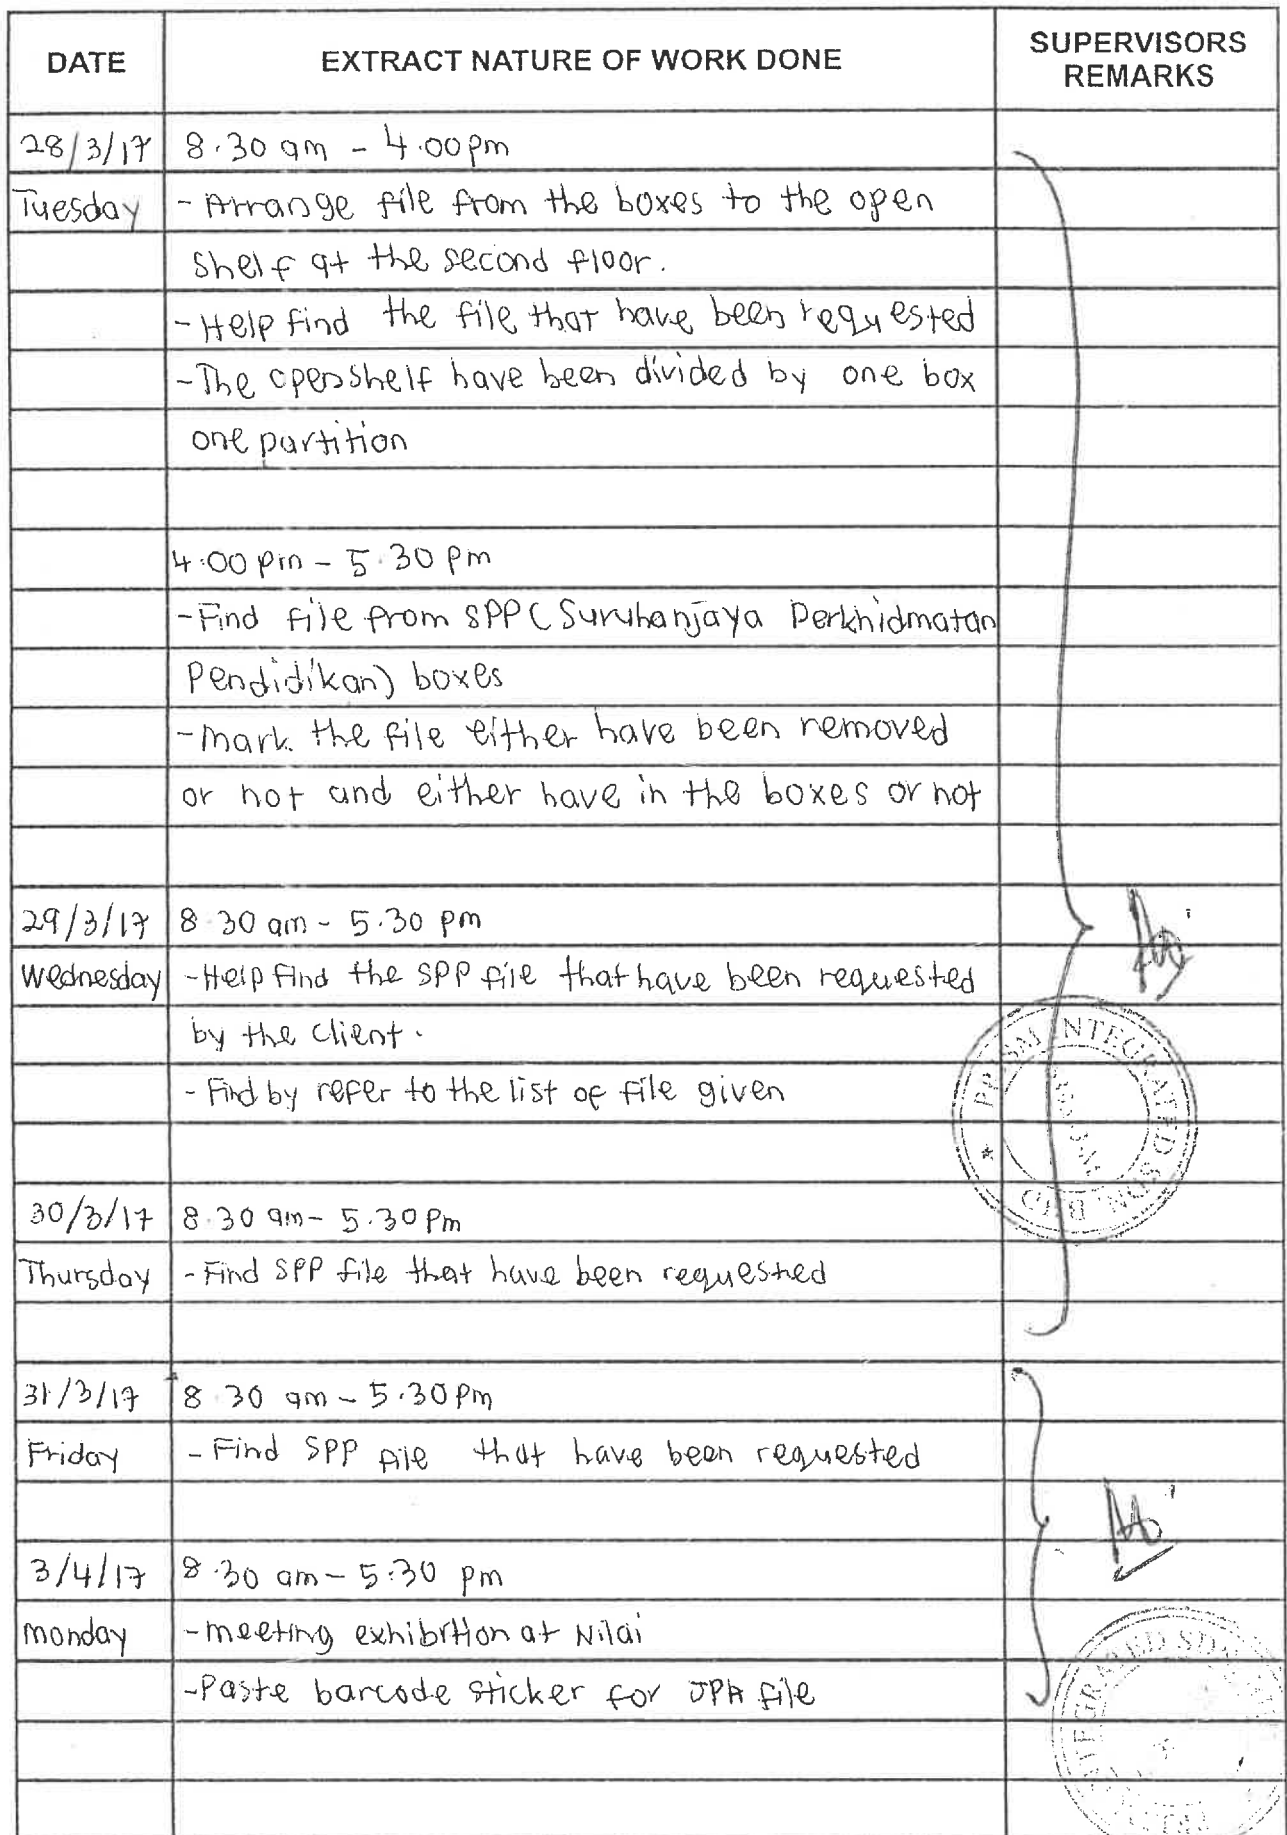 DATE EXTRACT NATURE OF WORK DONE SUPERVISORS REMARKS
28/3/17 8.30 am - 4.00 pm
Tuesday - Arrange file from the boxes to the open
shelf at the second floor.
- Help find the file that have been requested
- The openshelf have been divided by one box
one partition
4.00 pm - 5.30 pm
- Find file from SPP (Suruhanjaya Perkhidmatan
Pendidikan) boxes
- Mark the file either have been removed
or not and either have in the boxes or not
29/3/17 8.30 am - 5.30 pm
Wednesday - Help find the SPP file that have been requested
by the client.
- Find by refer to the list of file given
PRISM INTEGRATED SDN BHD
30/3/17 8.30 am - 5.30 pm
Thursday - Find SPP file that have been requested
31/3/17 8.30 am - 5.30 pm
Friday - Find SPP file that have been requested
3/4/17 8.30 am - 5.30 pm
monday - meeting exhibition at Nilai
- Paste barcode sticker for JPA file
INTEGRATED SDN